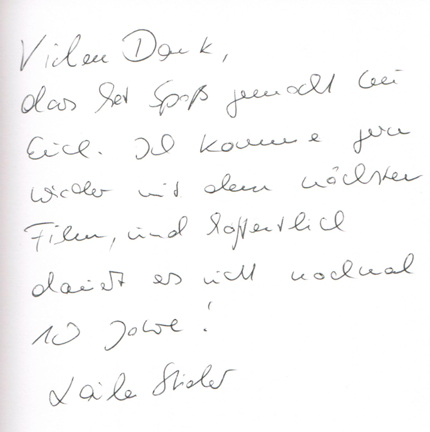 Vielen Dank,
das hat Spaß gemacht bei
Euch. Ich komme gern
wieder mit dem nächsten
Film, und hoffentlich
dauert es nicht nochmal
10 Jahre!
Laila Stieler